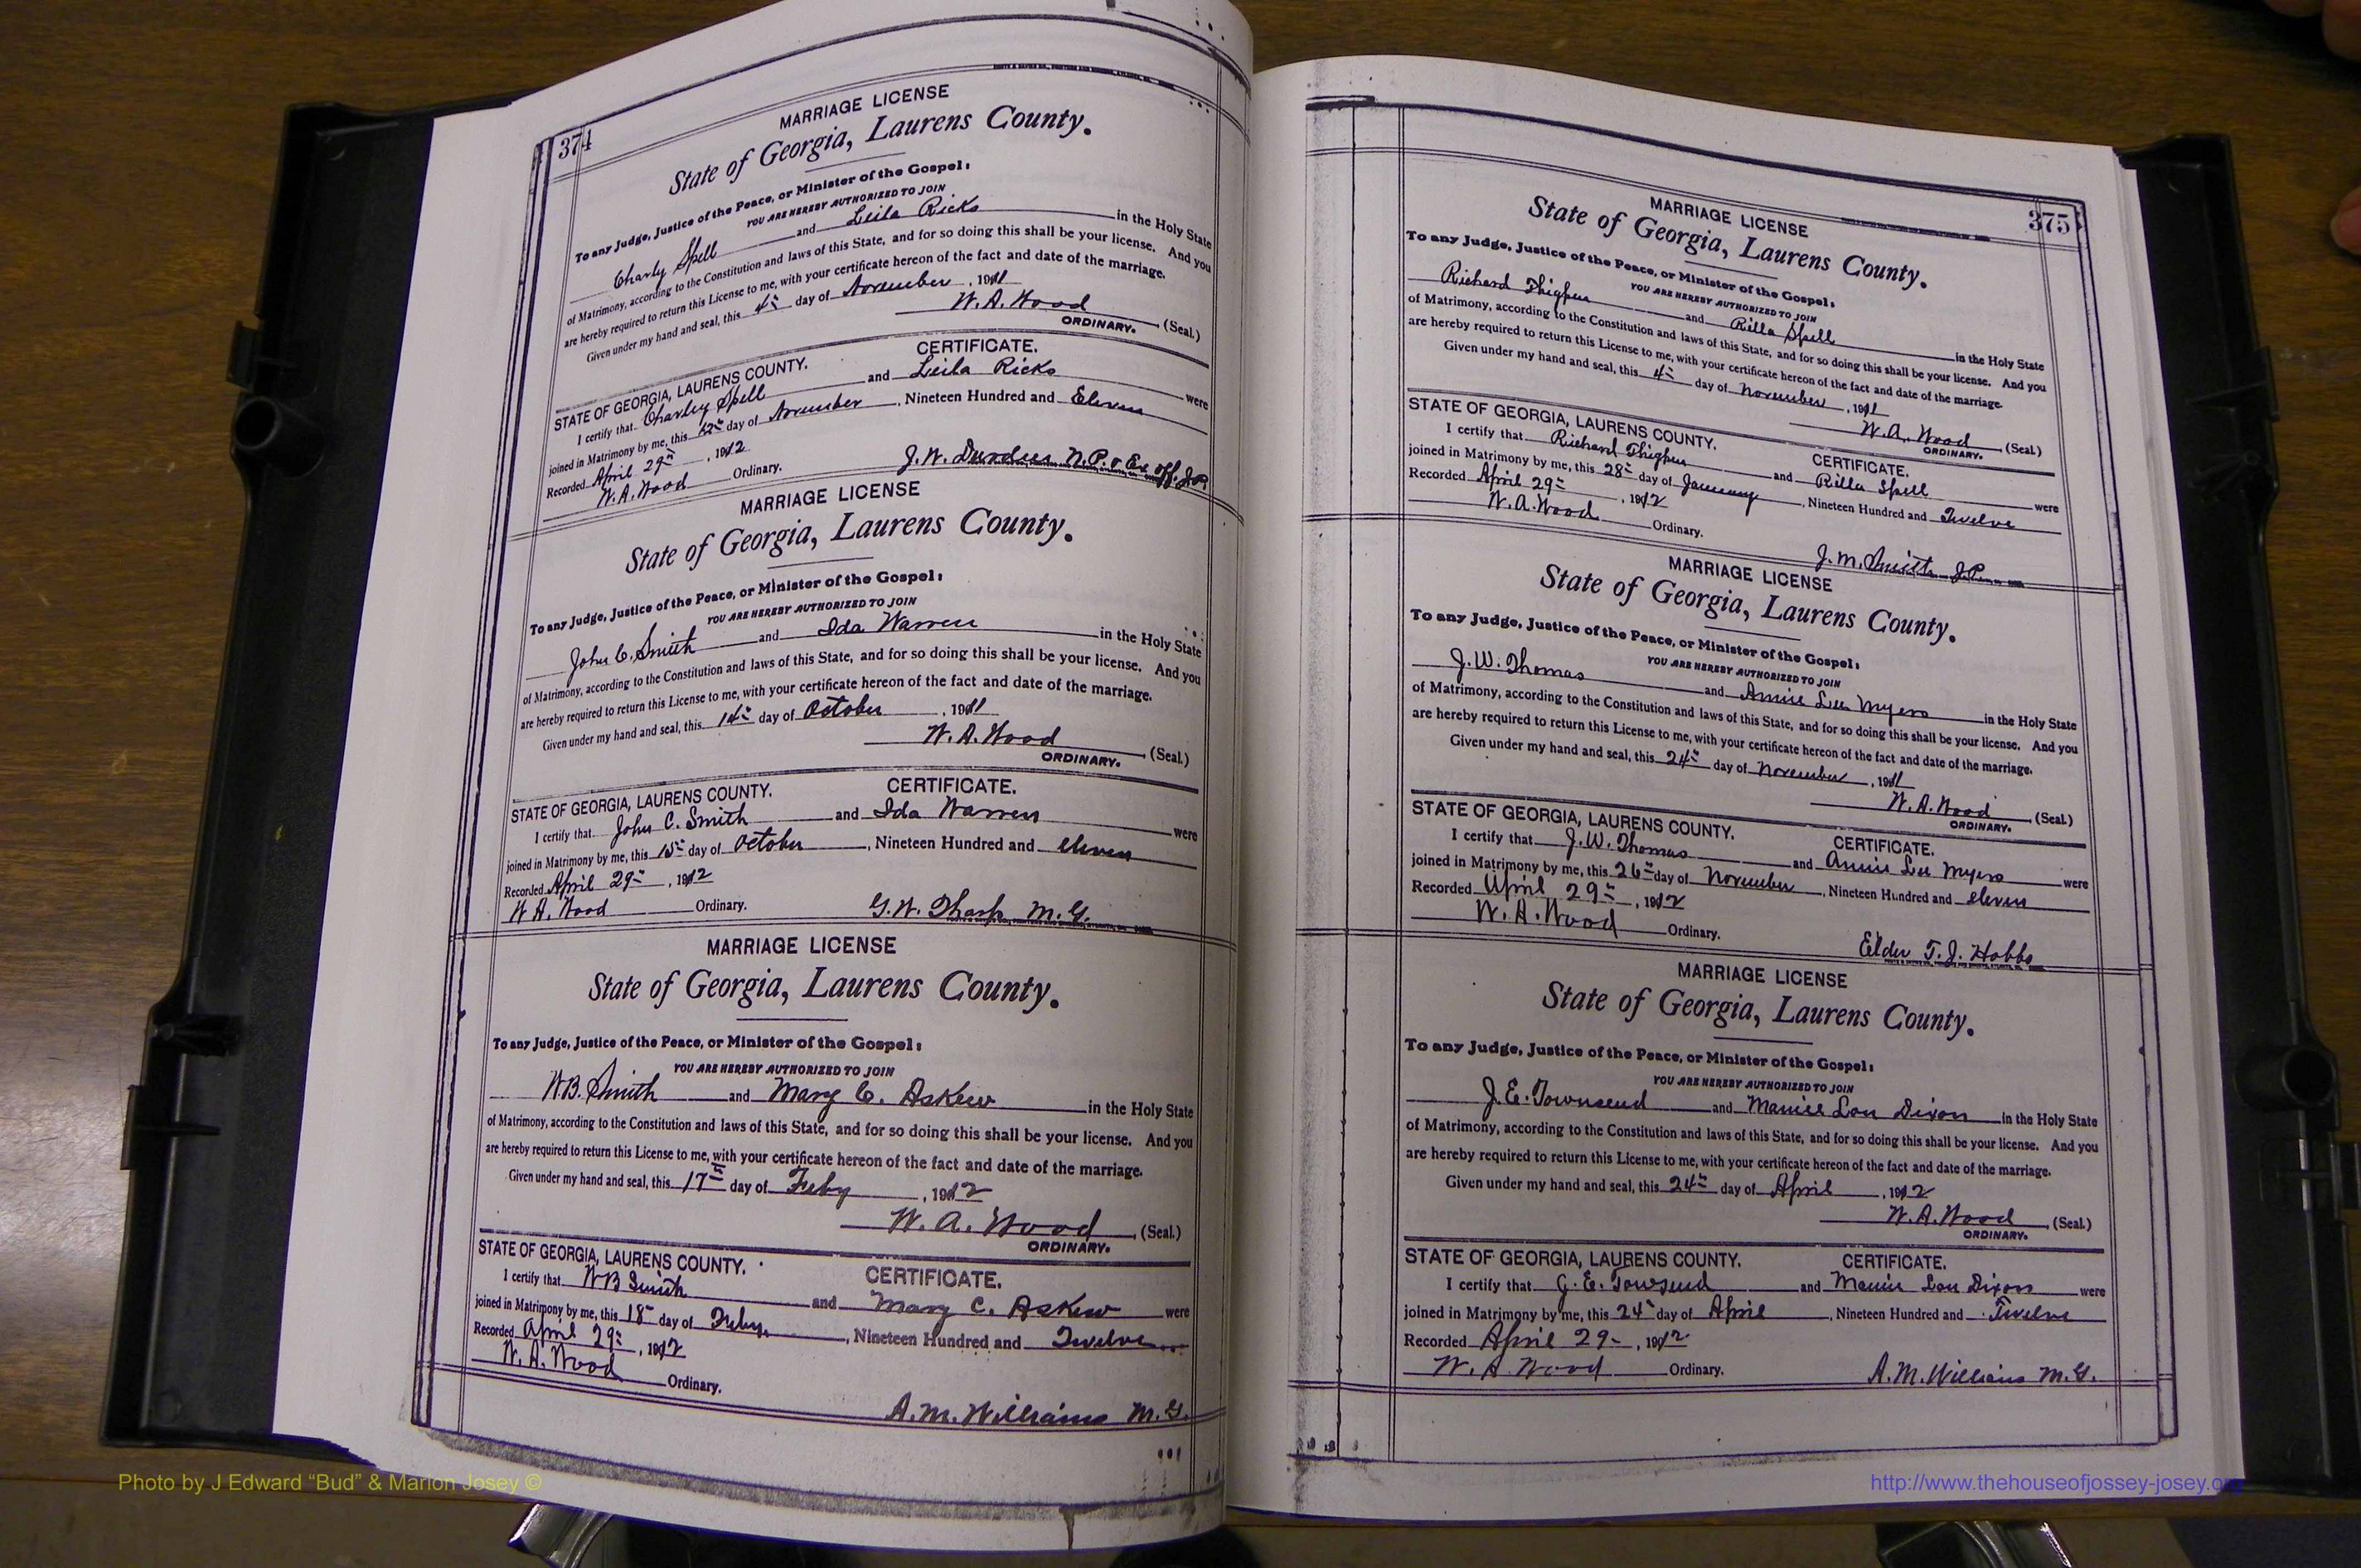 374
MARRIAGE LICENSE
State of Georgia, Laurens County.
To any Judge, Justice of the Peace, or Minister of the Gospel:
YOU ARE HEREBY AUTHORIZED TO JOIN
Charly Spell and Leila Ricks in the Holy State
of Matrimony, according to the Constitution and laws of this State, and for so doing this shall be your license. And you
are hereby required to return this License to me, with your certificate hereon of the fact and date of the marriage.
Given under my hand and seal, this 4th day of November, 1911
W. A. Wood (Seal.)
ORDINARY.
STATE OF GEORGIA, LAURENS COUNTY. CERTIFICATE.
I certify that Charley Spell and Leila Ricks were
joined in Matrimony by me, this day of November, Nineteen Hundred and Eleven
Recorded April 29th, 1912
W. A. Wood Ordinary. J. W. N.P. & Ex off. J.P.
MARRIAGE LICENSE
State of Georgia, Laurens County.
To any Judge, Justice of the Peace, or Minister of the Gospel:
YOU ARE HEREBY AUTHORIZED TO JOIN
John C. Smith and Ida Warren in the Holy State
of Matrimony, according to the Constitution and laws of this State, and for so doing this shall be your license. And you
are hereby required to return this License to me, with your certificate hereon of the fact and date of the marriage.
Given under my hand and seal, this 14th day of October, 1911
W. A. Wood (Seal.)
ORDINARY.
STATE OF GEORGIA, LAURENS COUNTY. CERTIFICATE.
I certify that John C. Smith and Ida Warren were
joined in Matrimony by me, this 15th day of October, Nineteen Hundred and eleven
Recorded April 29th, 1912
W. A. Wood Ordinary. G. W. Tharp M. G.
MARRIAGE LICENSE
State of Georgia, Laurens County.
To any Judge, Justice of the Peace, or Minister of the Gospel:
YOU ARE HEREBY AUTHORIZED TO JOIN
W B. Smith and Mary C. Askew in the Holy State
of Matrimony, according to the Constitution and laws of this State, and for so doing this shall be your license. And you
are hereby required to return this License to me, with your certificate hereon of the fact and date of the marriage.
Given under my hand and seal, this 17th day of Feby, 1912
W. A. Wood (Seal.)
ORDINARY.
STATE OF GEORGIA, LAURENS COUNTY. CERTIFICATE.
I certify that W B Smith and Mary C. Askew were
joined in Matrimony by me, this 18th day of Feby, Nineteen Hundred and Twelve
Recorded April 29th, 1912
W. A. Wood Ordinary.
A. M. Williams M. G.
375
MARRIAGE LICENSE
State of Georgia, Laurens County.
To any Judge, Justice of the Peace, or Minister of the Gospel:
YOU ARE HEREBY AUTHORIZED TO JOIN
Richard Thigpen and Rilla Spell in the Holy State
of Matrimony, according to the Constitution and laws of this State, and for so doing this shall be your license. And you
are hereby required to return this License to me, with your certificate hereon of the fact and date of the marriage.
Given under my hand and seal, this 4th day of November, 1911
W. A. Wood (Seal.)
ORDINARY.
STATE OF GEORGIA, LAURENS COUNTY. CERTIFICATE.
I certify that Richard Thigpen and Rilla Spell were
joined in Matrimony by me, this 28th day of January, Nineteen Hundred and Twelve
Recorded April 29th, 1912
W. A. Wood Ordinary.
J. M. Smith J.P.
MARRIAGE LICENSE
State of Georgia, Laurens County.
To any Judge, Justice of the Peace, or Minister of the Gospel:
YOU ARE HEREBY AUTHORIZED TO JOIN
J. W. Thomas and Annie Lee Myers in the Holy State
of Matrimony, according to the Constitution and laws of this State, and for so doing this shall be your license. And you
are hereby required to return this License to me, with your certificate hereon of the fact and date of the marriage.
Given under my hand and seal, this 24th day of November, 1911
W. A. Wood (Seal.)
ORDINARY.
STATE OF GEORGIA, LAURENS COUNTY. CERTIFICATE.
I certify that J. W. Thomas and Annie Lee Myers were
joined in Matrimony by me, this 26th day of November, Nineteen Hundred and eleven
Recorded April 29th, 1912
W. A. Wood Ordinary.
Elder T. J. Hobbs
MARRIAGE LICENSE
State of Georgia, Laurens County.
To any Judge, Justice of the Peace, or Minister of the Gospel:
YOU ARE HEREBY AUTHORIZED TO JOIN
J. E. Townsend and Mamie Lou Dixon in the Holy State
of Matrimony, according to the Constitution and laws of this State, and for so doing this shall be your license. And you
are hereby required to return this License to me, with your certificate hereon of the fact and date of the marriage.
Given under my hand and seal, this 24th day of April, 1912
W. A. Wood (Seal.)
ORDINARY.
STATE OF GEORGIA, LAURENS COUNTY. CERTIFICATE.
I certify that J. E. Towsend and Mamie Lou Dixon were
joined in Matrimony by me, this 24th day of April, Nineteen Hundred and Twelve
Recorded April 29, 1912
W. A. Wood Ordinary. A. M. Williams M. G.
Photo by J Edward “Bud” & Marion Josey ©
http://www.thehouseofjossey-josey.org